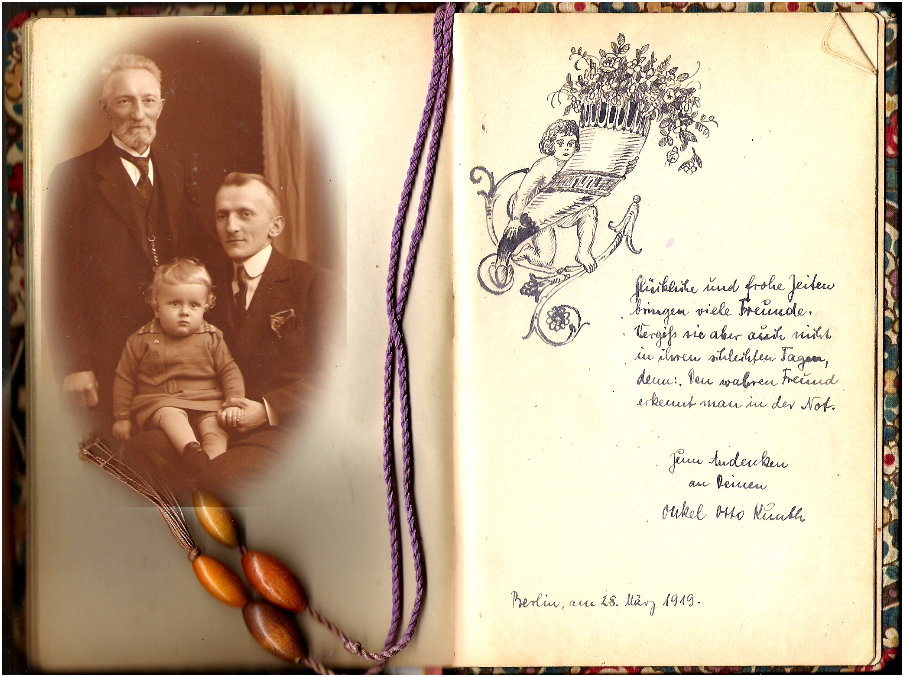 Glückliche und frohe Zeiten
bringen viele Freunde.
Vergeß sie aber auch nicht
in ihren schlechten Tagen,
denn: Den wahren Freund
erkennt man in der Not.
Zum Andenken
an Deinen
Onkel Otto Kunth
Berlin, am 28. März 1919.